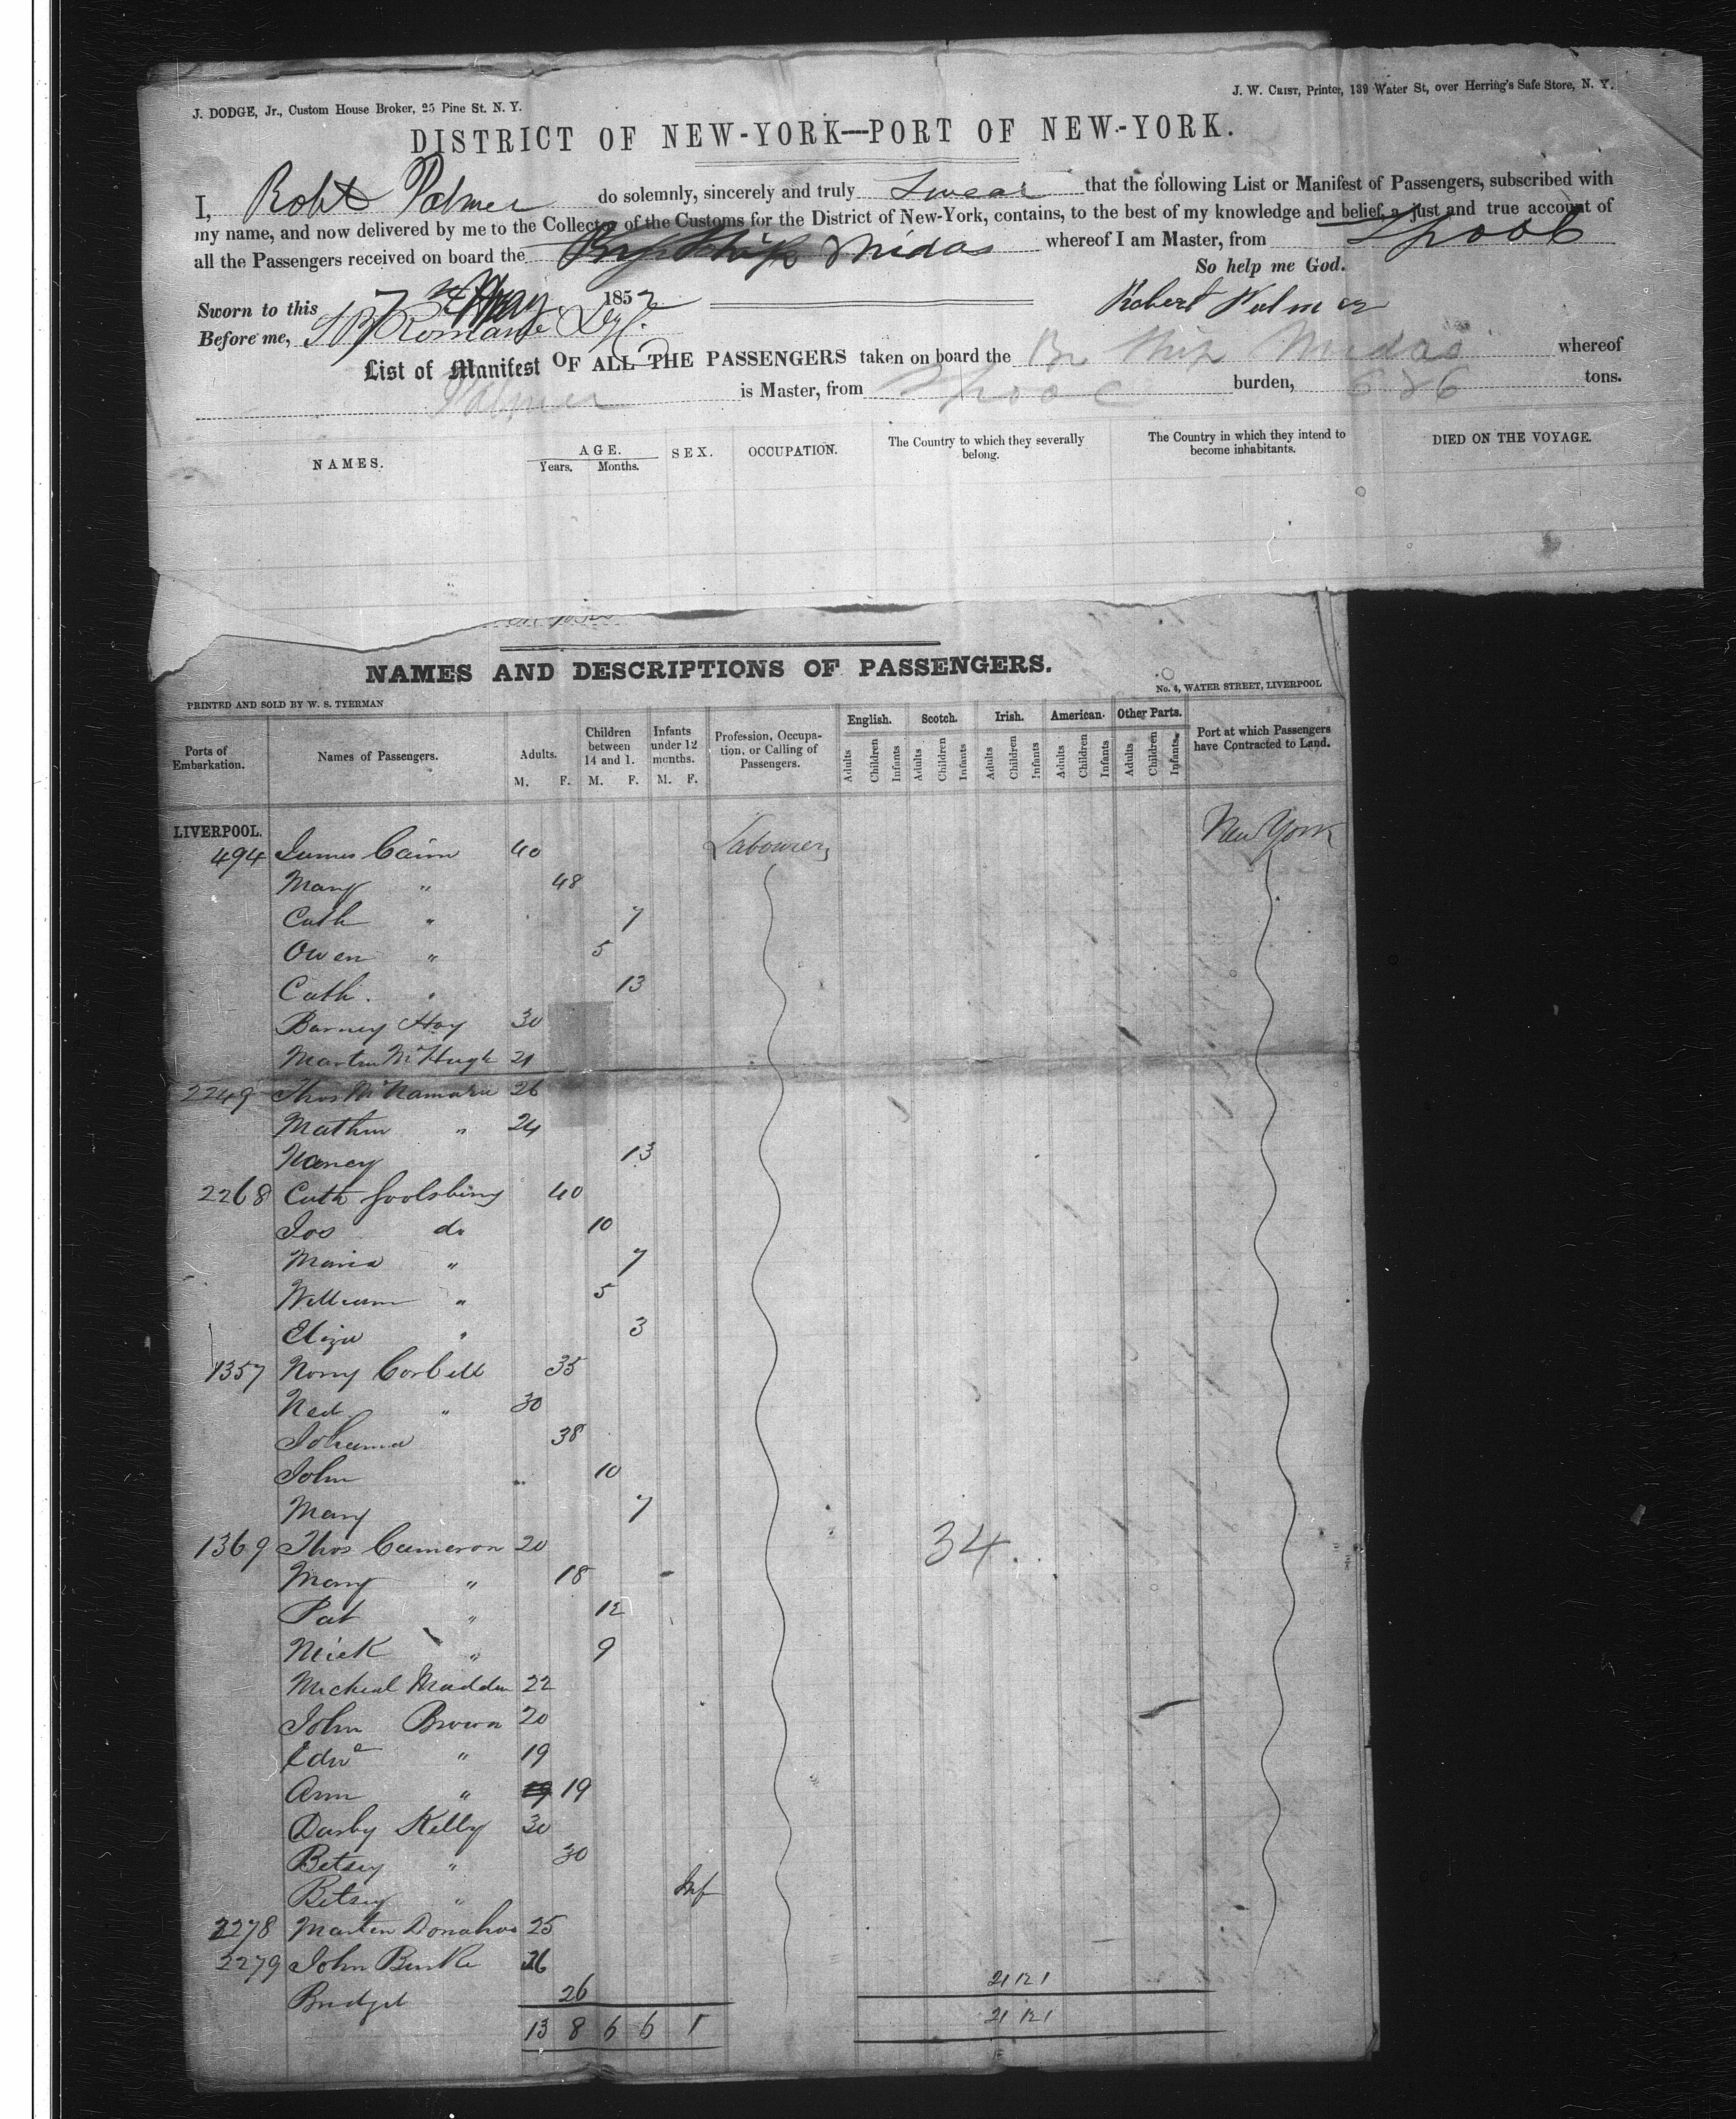 J. DODGE, Jr., Custom House Broker, 25 Pine St. N. Y.
J. W. CRIST, Printer, 139 Water St, over Herring's Safe Store, N. Y.
DISTRICT OF NEW-YORK—PORT OF NEW-YORK.
I, Robt Palmer do solemnly, sincerely and truly Swear that the following List or Manifest of Passengers, subscribed with
my name, and now delivered by me to the Collector of the Customs for the District of New-York, contains, to the best of my knowledge and belief, a just and true account of
all the Passengers received on board the Br Ship Midas whereof I am Master, from Lpool
So help me God.
Sworn to this 7 May 1852
Robert Palmer
Before me,
List of Manifest OF ALL THE PASSENGERS taken on board the Br Ship Midas whereof
Palmer is Master, from Lpool burden, 686 tons.
NAMES. AGE. Years. Months. SEX. OCCUPATION. The Country to which they severally belong. The Country in which they intend to become inhabitants. DIED ON THE VOYAGE.
NAMES AND DESCRIPTIONS OF PASSENGERS.
PRINTED AND SOLD BY W. S. TYERMAN
No. 4, WATER STREET, LIVERPOOL
Ports of Embarkation. Names of Passengers. Adults. M. F. Children between 14 and 1. M. F. Infants under 12 months. M. F. Profession, Occupation, or Calling of Passengers. English. Adults Children Infants Scotch. Adults Children Infants Irish. Adults Children Infants American. Adults Children Infants Other Parts. Adults Children Infants. Port at which Passengers have Contracted to Land.
LIVERPOOL.
494 James Cain 40 Labourers New York
Mary " 48
Cath " 7
Owen " 5
Cath. " 13
Barney Hoy 30
Martin McHugh 21
2249 Thos McNamara 26
Mathew " 24
Nancy 13
2268 Cath Goolsbing 40
Jos do 10
Maria " 7
William " 5
Eliza " 3
1357 Nony Corbett 35
Ned " 30
Johanna 38
John 10
Mary 7
1369 Thos Cameron 20 34
Mary " 18
Pat " 12
Mick " 9
Micheal Madden 22
John Brown 20
Edwd " 19
Ann " 19
Darby Kelly 30
Betsey " 30
Betsey " Inf
2278 Martin Donahoo 25
2279 John Burke 26
Bridget 26 21 12 1
13 8 6 6 1 21 12 1